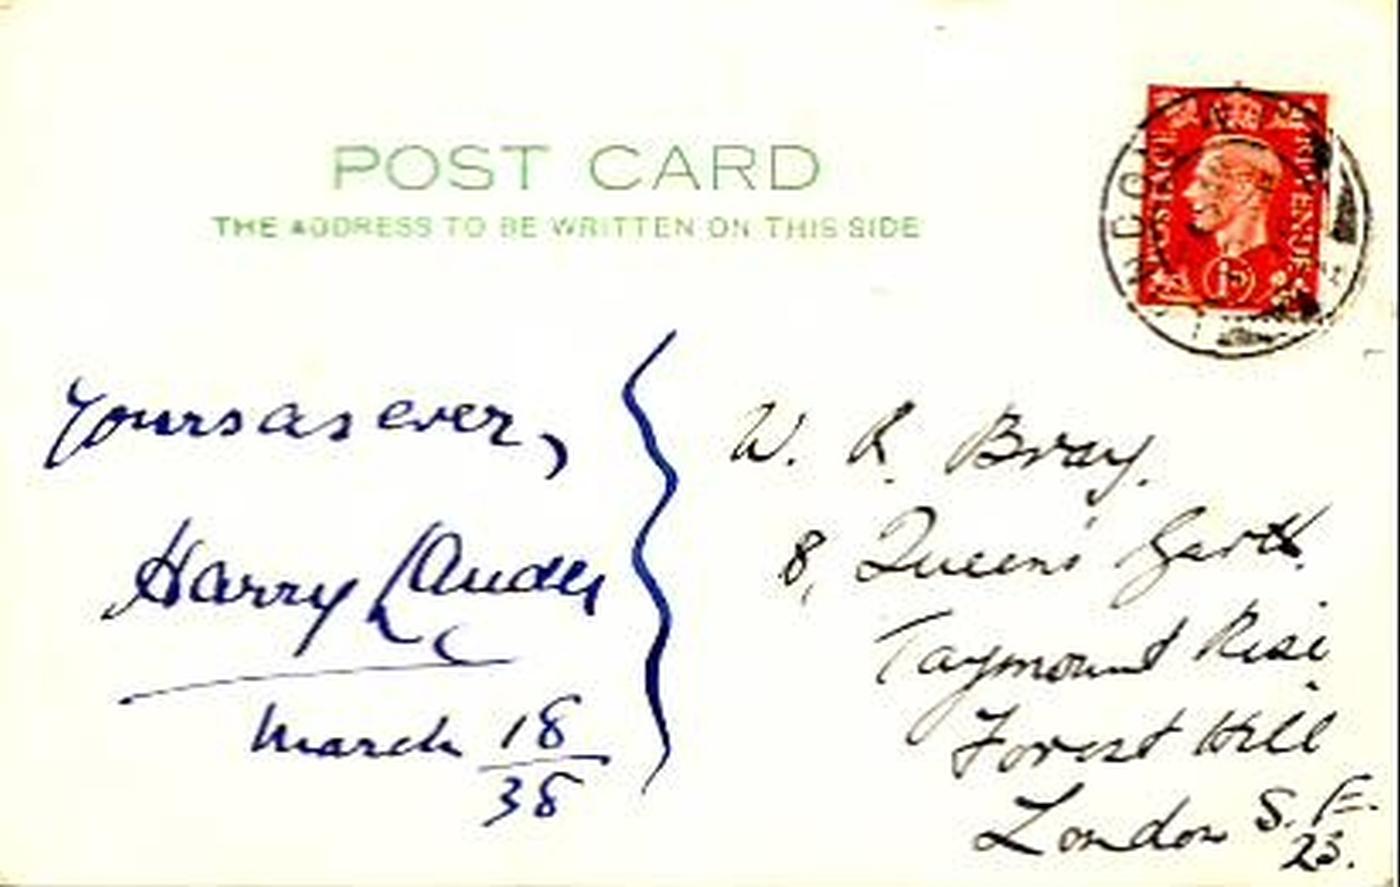 POST CARD
THE ADDRESS TO BE WRITTEN ON THIS SIDE
POSTAGE
REVENUE
1D
yours as ever,
Harry Lauder
March 18
38
W. R. Bray.
8, Queens Garth.
Taymount Rise
Forest Hill
London S. E.
23.